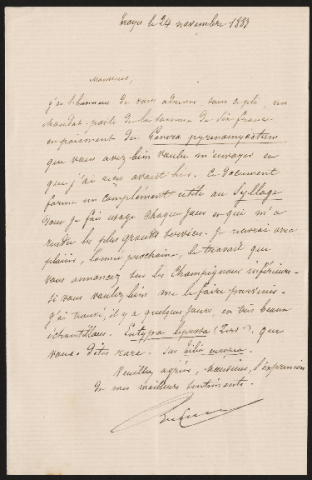 Troyes le 24 novembre 1883
Monsieur,
j'ai l'honneur de vous adresser sous ce pli, un
Mandat-poste de la somme de six francs
en paiement du Genera pyrenomycetum
que vous avez bien voulu m'envoyer et
que j'ai reçu avant hier. Ce document
forme un complément utile au Sylloge
dont je fais usage chaque jour et qui m'a
rendu les plus grands services. Je recevrai avec
plaisir, l'année prochaine, le travail que
vous annoncez sur les Champignons inférieurs
si vous voulez bien me le faire parvenir.
j'ai trouvé, il y a quelques jours, en très beaux
échantillons, Eutypa (Pers), que
vous dites rare. Sur
Veuillez agréer, Monsieur, l'expression
de mes meilleurs sentiments.